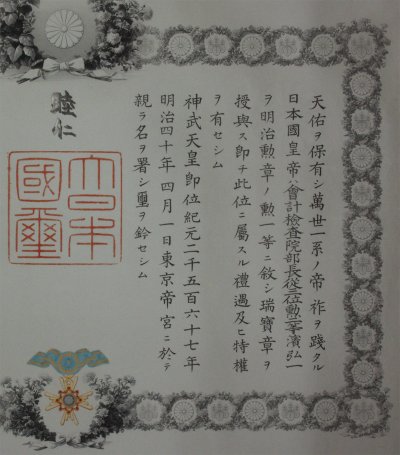 天佑ヲ保有シ萬世一系ノ帝祚ヲ踐タル
日本國皇帝ハ會計檢査院部長從三位勲二等濱弘一
ヲ明治勲章ノ勲一等ニ敘シ瑞寶章ヲ
授與ス即チ此位ニ屬スル禮遇及ヒ特權
ヲ有セシム
神武天皇即位紀元二千五百六十七年
明治四十年四月一日東京帝宮ニ於テ
親ラ名ヲ署シ璽ヲ鈐セシム
睦仁
大日本
國璽